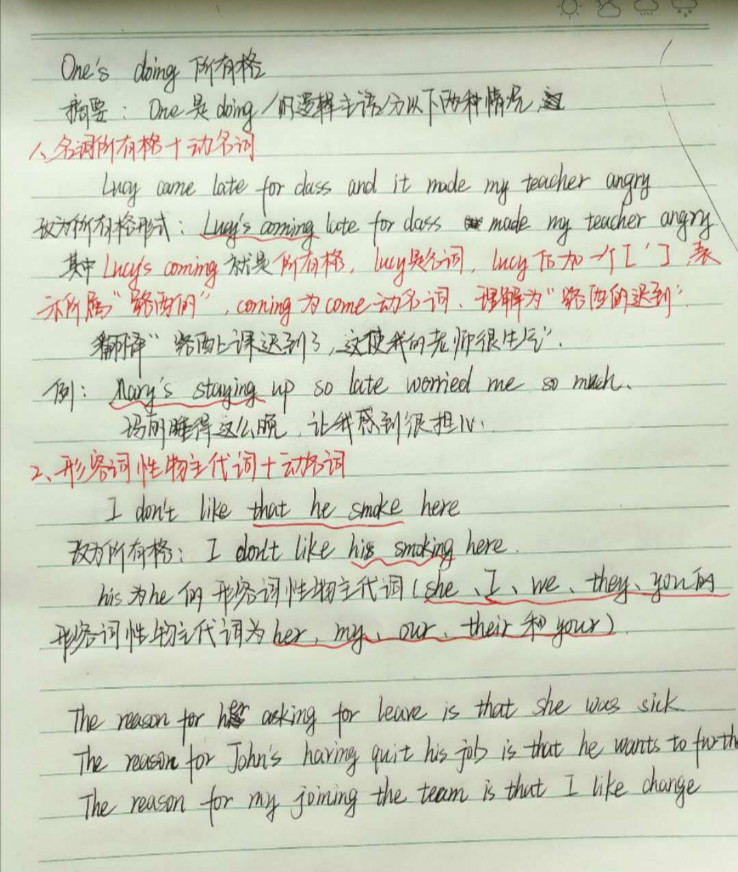 One's doing 所有格
摘要：One是doing的逻辑主语分以下两种情况
1、名词所有格+动名词
Lucy came late for class and it made my teacher angry
改为所有格形式：Lucy's coming late for class made my teacher angry
其中Lucy's coming 就是所有格，lucy是名词，Lucy后加一个[ ' ] 表
示所属"路西的"，coming为come动名词、理解为"路西的迟到"
翻译"路西上课迟到了，这使我的老师很生气".
例：Mary's staying up so late worried me so much.
玛丽睡得这么晚，让我感到很担心.
2、形容词性物主代词+动名词
I don't like that he smoke here
改为所有格：I don't like his smoking here.
his为he的形容词性物主代词(she、I、we、they、you的
形容词性物主代词为her、my、our、their和your)
The reason for asking for leave is that she was sick
The reason for John's having quit his job is that he wants to furth
The reason for my joining the team is that I like change